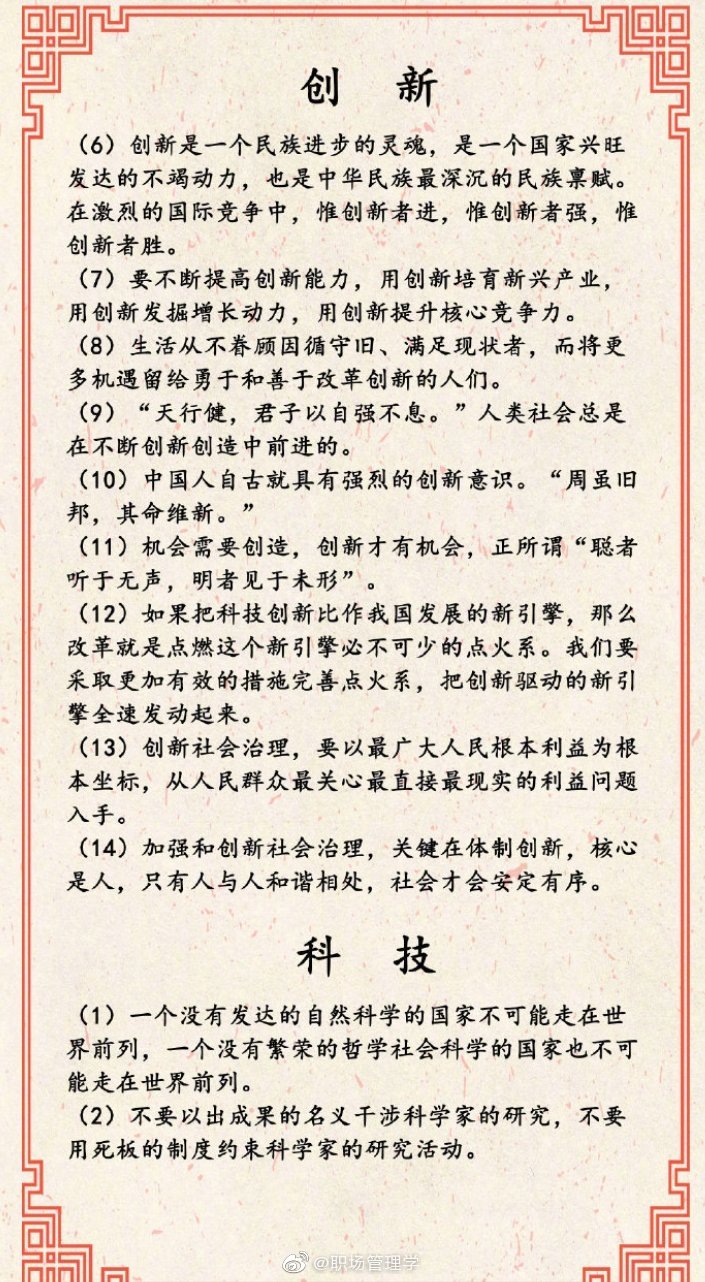 创 新
（6）创新是一个民族进步的灵魂，是一个国家兴旺
发达的不竭动力，也是中华民族最深沉的民族禀赋。
在激烈的国际竞争中，惟创新者进，惟创新者强，惟
创新者胜。
（7）要不断提高创新能力，用创新培育新兴产业，
用创新发掘增长动力，用创新提升核心竞争力。
（8）生活从不眷顾因循守旧、满足现状者，而将更
多机遇留给勇于和善于改革创新的人们。
（9）“天行健，君子以自强不息。”人类社会总是
在不断创新创造中前进的。
（10）中国人自古就具有强烈的创新意识。“周虽旧
邦，其命维新。”
（11）机会需要创造，创新才有机会，正所谓“聪者
听于无声，明者见于未形”。
（12）如果把科技创新比作我国发展的新引擎，那么
改革就是点燃这个新引擎必不可少的点火系。我们要
采取更加有效的措施完善点火系，把创新驱动的新引
擎全速发动起来。
（13）创新社会治理，要以最广大人民根本利益为根
本坐标，从人民群众最关心最直接最现实的利益问题
入手。
（14）加强和创新社会治理，关键在体制创新，核心
是人，只有人与人和谐相处，社会才会安定有序。
科 技
（1）一个没有发达的自然科学的国家不可能走在世
界前列，一个没有繁荣的哲学社会科学的国家也不可
能走在世界前列。
（2）不要以出成果的名义干涉科学家的研究，不要
用死板的制度约束科学家的研究活动。
@职场管理学